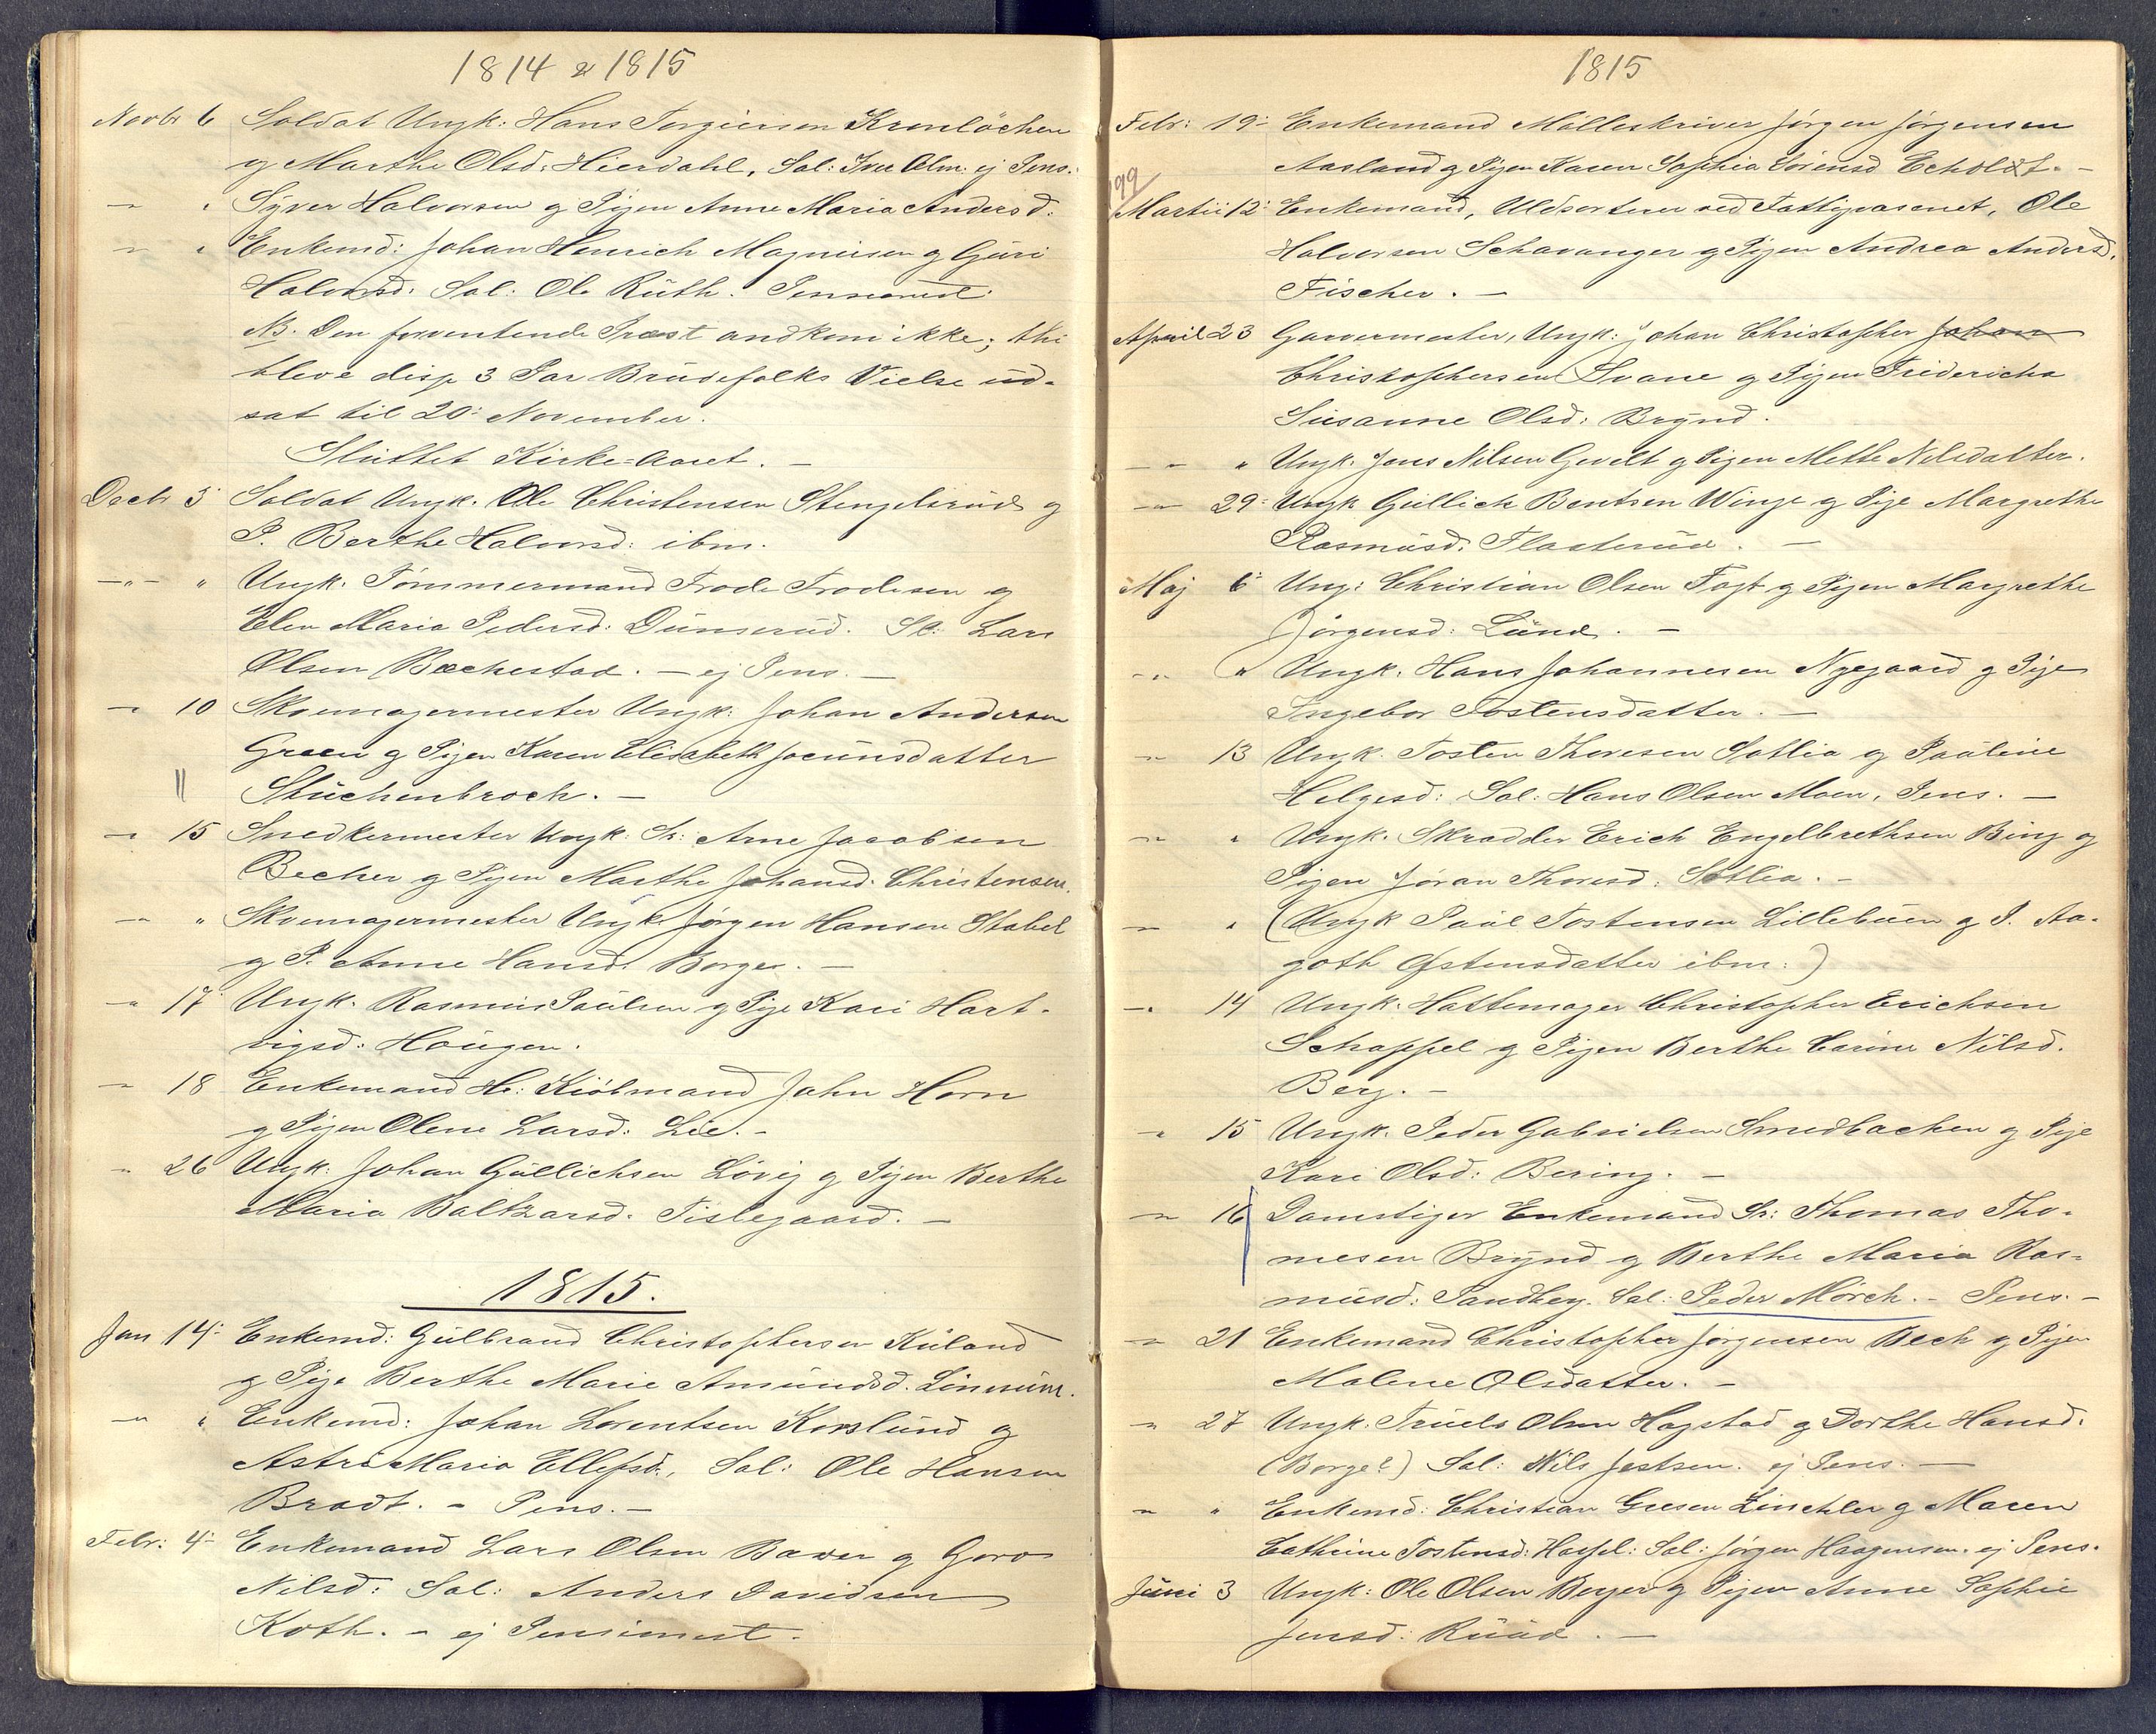 1814 & 1815
Novbr 6 Soldat Ungk: Hans Torgiersen Kronløchen
g Marthe Olsd: Hierdahl, Sal: Iver Olm: ej Pens.
-"- " Syver Halvorsen g Pigen Anne Maria Andersd:
-"- " Enkemd: Johan Henrich Magnusen g Guri
Halvorsd: Sal: Ole Rüth. Pensioneret
NB. Den forventende Præst andkom ikke; thi
bleve disse 3 Par Brüdefolks Vielse üd-
sat til 20: November.
Slüttet Kirke=Aaret. —
Decbr 3 Soldat Ungk. Ole Christensen Stengelsrüd g
P. Berthe Halvorsd: ibm.
-"- " Ungk. Tømmermand Frode Frodesen g
Elen Maria Pedersd: Dünserüd. Sl: Lars
Olsen Bæchestad. — ej Pens. —
-"- 10 Skoemagermester Ungk: Johan Andersen
Green g Pigen Karen Elisabeth Jocumsdatter
Stüchenbroch. —
-"- 15 Snedkermester Ungk: Sr: Arne Jacobsen
Becher g Pigen Marthe Johansd: Christensen.
-"- " Skoemagermester Ungk: Jørgen Hansen Stabel
g P. Anne Hansd: Borger. —
-"- 17 Ungk. Rasmus Paülsen g Pige Kari Hart-
vigsd: Haügen.
-"- 18 Enkemand Hr: Kiøbmand John Horn
g Pigen Olene Larsd: Lie. -
-"- 26 Ungk: Johan Güllichsen Løvig g Pigen Berthe
Maria Baltzarsd: Tislegaard. —
1815.
Jan 14: Enkemd: Gülbrand Christophersen Küland
g Pige Berthe Marie Amündsd.
-"- " Enkemd: Johan Lorentsen Korslünd g
Astri Maria Ellefsd:, Sal: Ole Hansen
Bradt. - Pens. —
Febr: 4: Enkemand Lars Olsen g Goro
Nilsd: Sal: Anders Davidsen
Koth. - ej Pensioneret.
1815
Febr: 19: Enkemand Mölleskriver Jörgen Jörgensen
Aasland g Pigen Karen Sophia Sörensd Echoldt. -
99
Martii 12: Enkemand, Uldsorterer ved Fattigvæsenet, Ole
Halvorsen Schavanger g Pigen Andrea Andersd.
Fischer. —
April 23 Garvermester, Ungk: Johan Christopher Johan
Christophersen Svane g Pigen Fridericha
Süsanne Olsd: Brynd.
-"- " Ungk. Jens Nilsen Gevelt g Pigen Mette Nilsdatter.
-"- 29: Ungk Güllich Bentsen Winge g Pige Margrethe
Rasmüsd: Flasterüd. —
Maj 6: Ung: Christian Olsen Fogt g Pigen Margrethe
Jörgensd: Lünd. —
-"- " Ungk. Hans Johannesen Nygaard g Pige
Ingebor Tostensdatter. —
-"- 13 Ungk. Tosten Thoresen Sotlia g Paüline
Helgesd: Sal: Hans Olsen Moen, Pens. —
-"- " Ungk. Skradder Erich Engelbrethsen Bing g
Pigen Jöran Thoresd: Sotlia. -
-"- " (Ungk Paül Tostensen Lillebüen g P. Aa-
goth Østensdatter ibm:)
-"- 14 Ungk. Hattemager Christopher Erichsen
Schappel g Pigen Berthe Carine Nilsd.
Berg. -
-"- 15 Ungk. Peder Gabrielsen Smedbachen g Pige
Kari Olsd: Bering. —
-"- 16 Enkemand Sr: Thomas Tho-
mesen Brynd g Berthe Maria Ras-
müsd: Sandbey. Sal: Peder Mörch. - Pens. -
-"- 21 Enkemand Christopher Jörgensen Bech g Pigen
Malene Olsdatter. —
-"- 27 Ungk. Trüels Olsen Hagstad g Dorthe Hansd.
(Borge?) Sal: Nils Jostsen. ej Pens. —
-"- " Enkemd: Christian Linchler g Maren
Cathrine Tostensd: Hassel: Sal: Jörgen Haagensen. ej Pens.
Jüni 3 Ungk: Ole Olsen Berger g Pigen Anne Sophie
Jensd: Rüüd. —